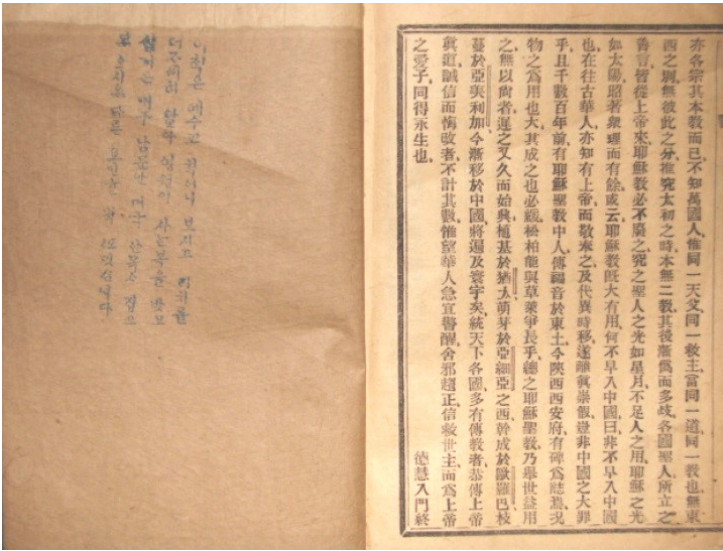 亦各宗其本敎而已、不知萬國人、惟同一天父、同一救主、當同一道、同一敎也、無東
西之別、無彼此之分、推究太初之時、本無二敎、其後漸僞而多歧、各國聖人所立之
善言、皆從上帝來、耶穌敎必不廢之、究之聖人之光、如星月、不足人之用、耶穌之光
如太陽、昭著衆理而有餘、或云、耶穌敎旣大有用、何不早入中國、曰、非不早入中國
也、在往古華人、亦知有上帝而敬奉之、及代異時移、遂離眞崇假、豈非中國之大罪
乎、且千數百年前、有耶穌聖敎中人、傳福音於東土、今陝西西安府、有碑爲誌、焉況
物之爲用也大、其成之也必緩、松柏能與草萊爭長乎、總之耶穌聖敎、乃舉世益用
之無以尙者、遲之又久而始興、植基於猶太、萌芽於亞細亞之西、幹成於歐羅巴、枝
蔓於亞美利加、今漸移於中國、將遍及寰宇矣、統天下各國、多有傳敎者、恭傳上帝
眞道、誠信而悔改者、不計其數、惟望華人、急宜警醒、舍邪趨正、信救世主、而爲上帝
之愛子、同得永生也、
德慧入門終
이책은 예수교 책이니 보시고 리치를
더 자세히 알아 영원히 사는 복을 받으
남문안 안목사 집으
로 오시오 다른